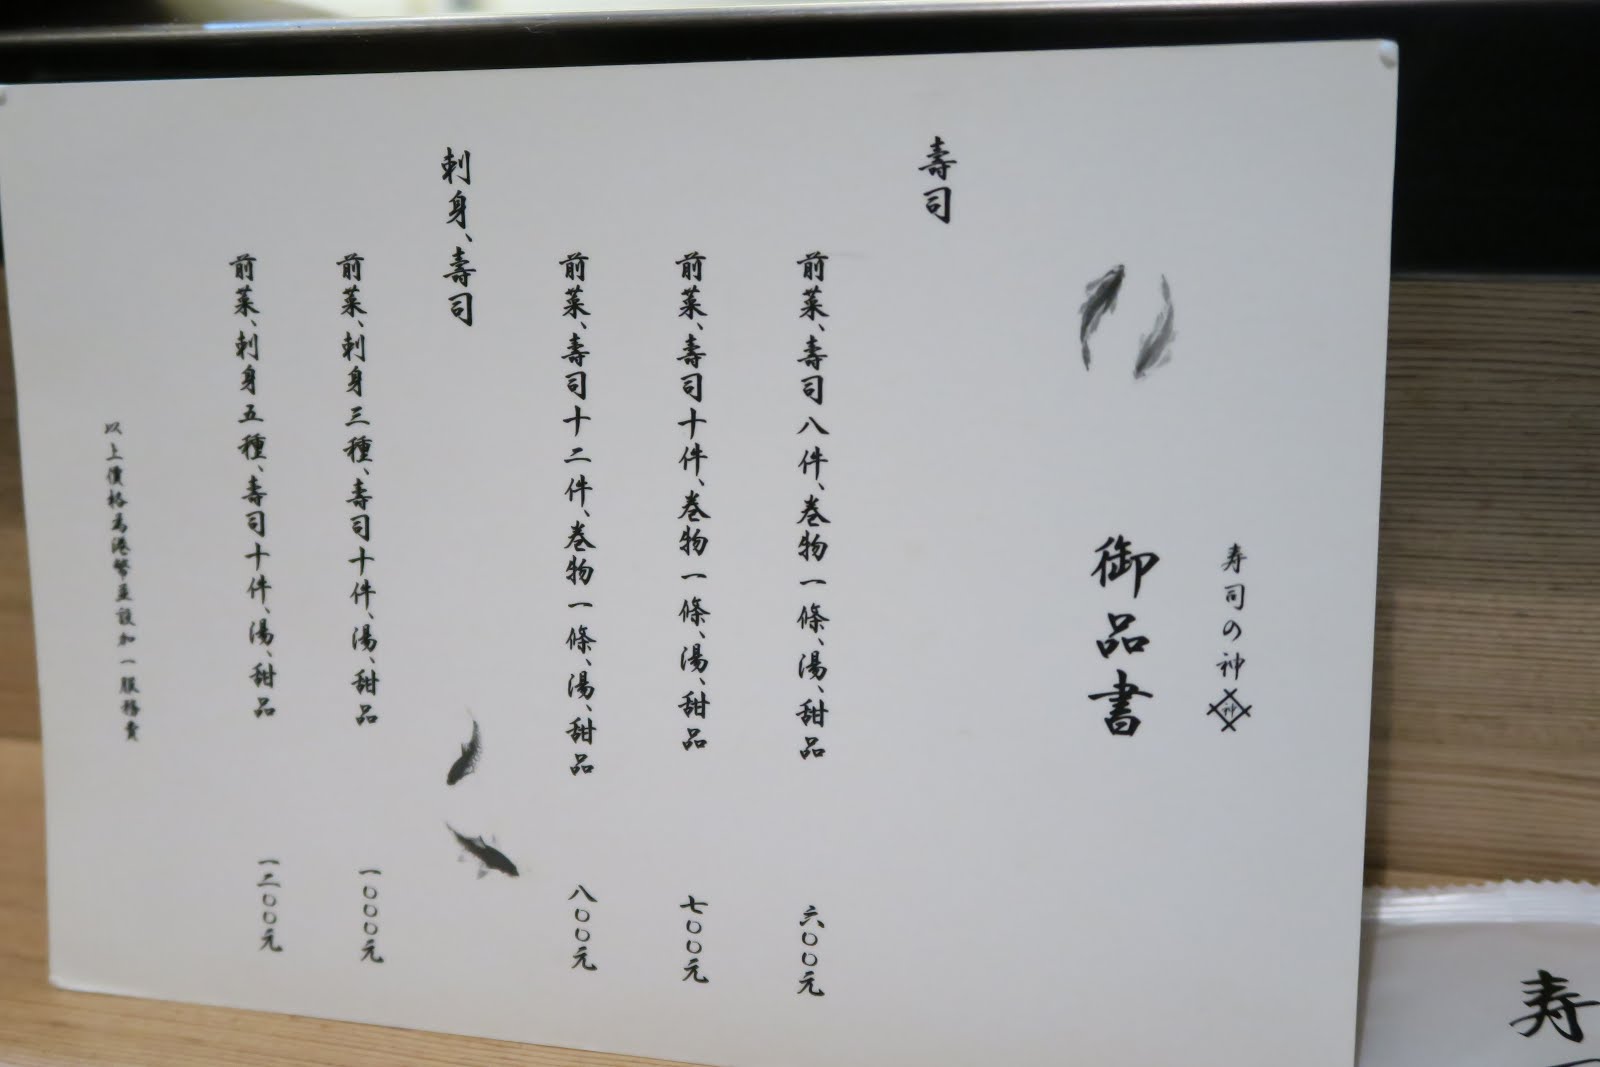 寿司の神
神
御品書
壽司
前菜、壽司八件、卷物一條、湯、甜品 六〇〇元
前菜、壽司十件、卷物一條、湯、甜品 七〇〇元
前菜、壽司十二件、卷物一條、湯、甜品 八〇〇元
刺身、壽司
前菜、刺身三種、壽司十件、湯、甜品 一〇〇〇元
前菜、刺身五種、壽司十件、湯、甜品 一二〇〇元
以上價格為港幣並設加一服務費
寿